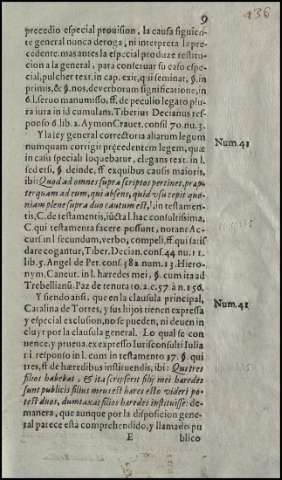 9
136
precedio especial prouision, la causa siguien-
te general nunca deroga, ni interpreta la pre-
cedente. mas antes la especial produze restric-
cion a la general, para conseruar su caso espe-
cial, pulcher text. in cap. exit, qui seminat, §. in
primis, & §. nos, de verborum significatione, in
d. l. seruo manumisso, ff. de peculio legato plu-
ra iura in id cumulans. Tiberius Decianus res-
ponso 6. lib. 2. Aymon Crauet. consil 70. nu. 3.
Y la ley general correctoria aliarum legum
Num. 41
numquam corrigit præcedentem legem, quæ
in casu speciali loquebatur, elegans text. in l.
sed etsi, §. deinde, ff. ex quibus causis maiores,
ibi: Quod ad omnes supra scriptos pertinet, præ-
terquam ad eum, qui absens, quid usu cepit quo-
niam plene supra duo cautum est, in testamen-
tis, C. de testamentis, iuncta l. hac consultissima,
C. qui testamenta facere possunt, notane Ac-
curs. in l. secundum, verbo, compelli, ff. qui satis
dare cogantur, Tiber. Decian. cons. 44. nu. 11.
lib. 5. Angel de Per. cons. 382. num. 13. Hiero-
nym. Caneut. in l. hæredes mei, §. cum ita ad
Trebellianũ. Paz de tenuta to. 2. c. 57. à n. 156.
Y siendo ansi, que en la clausula principal,
Num. 41
Catalina de Torres, y sus hijos tienen expressa
y especial exclusion, no se pueden, ni deuen in
cluyr por la clausula general. Lo qual se con-
uence, y prueua ex expresso Iurisconsulti Iulia
ni responso in l. cum in testamento 37. §. qui
tres, ff. de hæredibus instituendis, ibi: Qui tres
filios habebat, & ita scripserit filij mei hæredes
sunt publicis filius meus est hæres esto videri po-
test duos, dumtaxat filios hæredes instituisse: de-
manera, que aunque por la disposicion gene-
ral parece està comprehendido, y llamado pu
E
blico